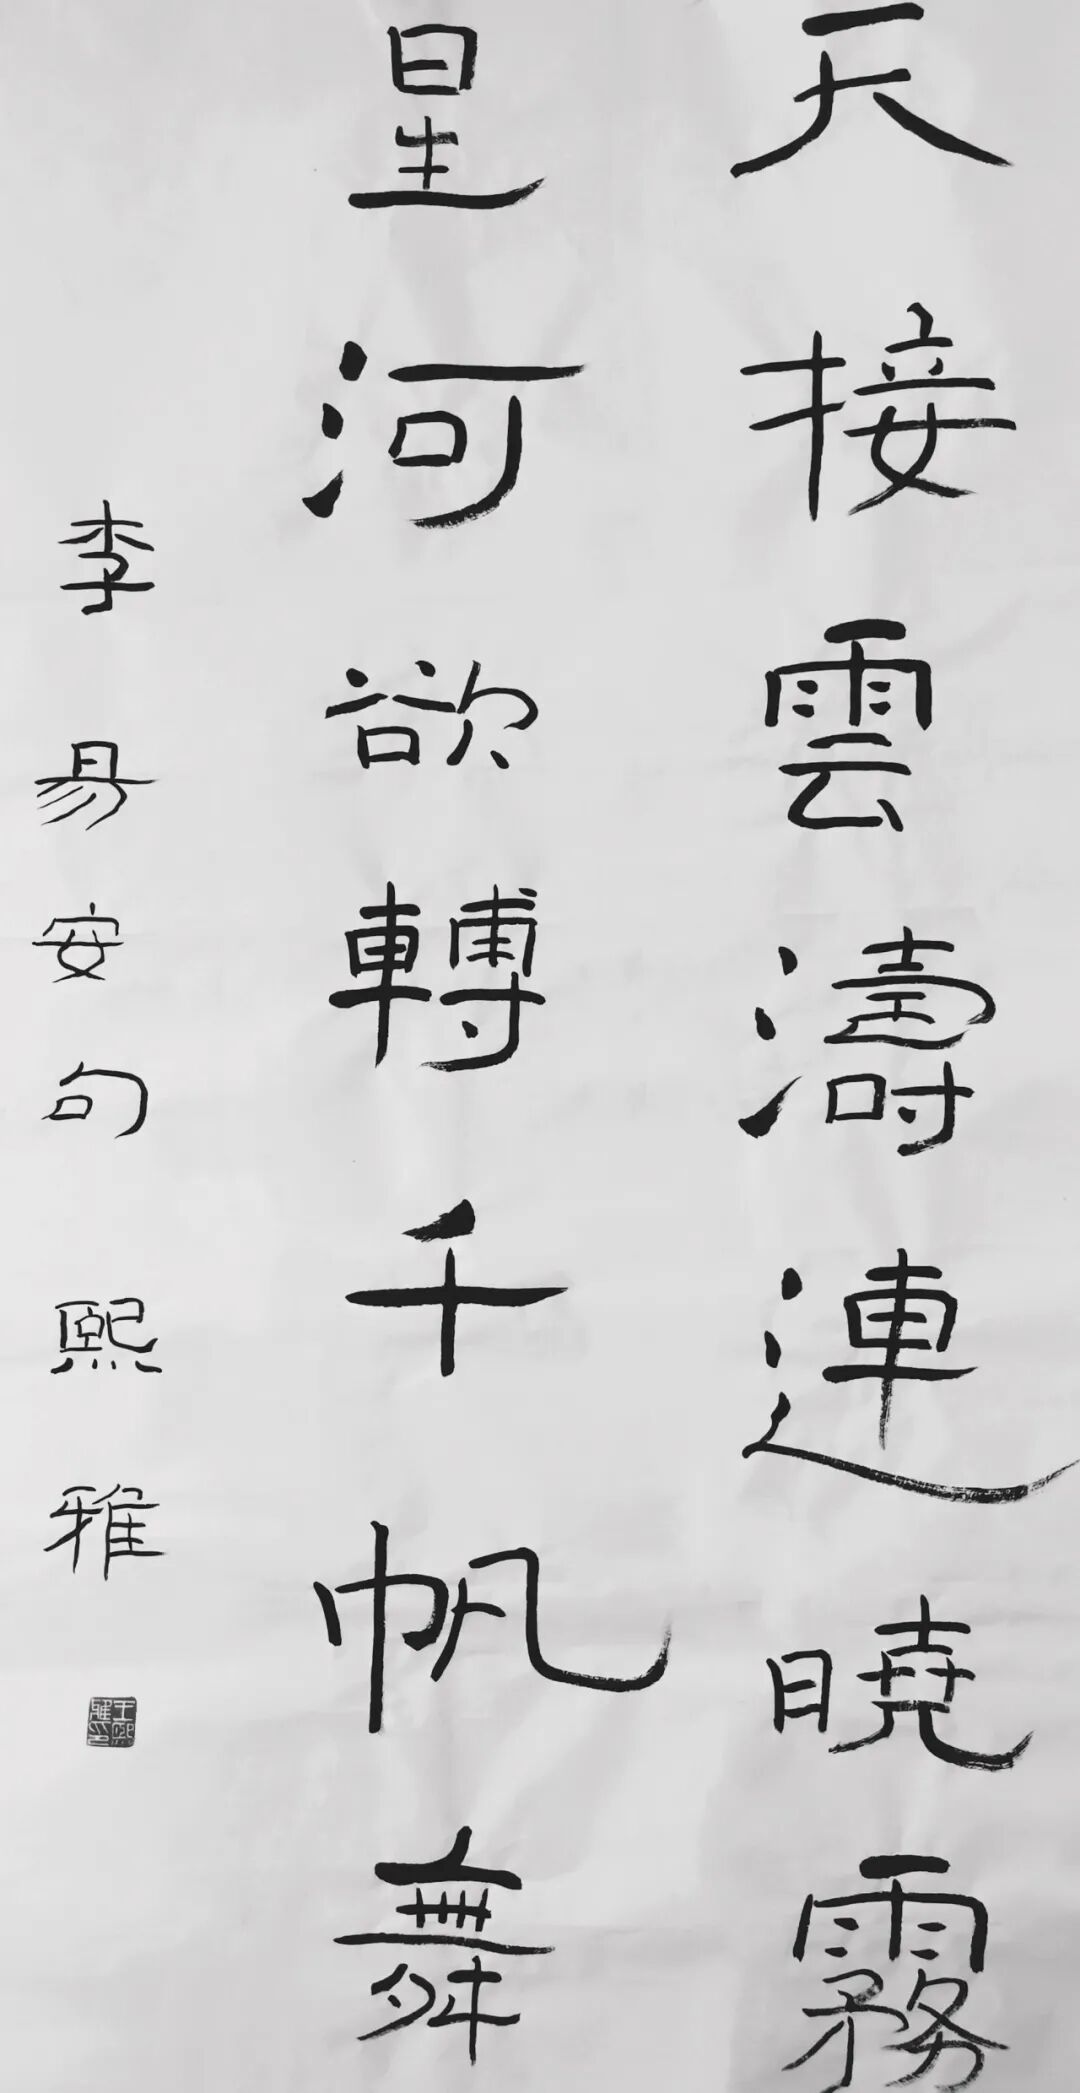 天接雲濤連曉霧
星河欲轉千帆舞
李易安句 熙雅
王熙雅印